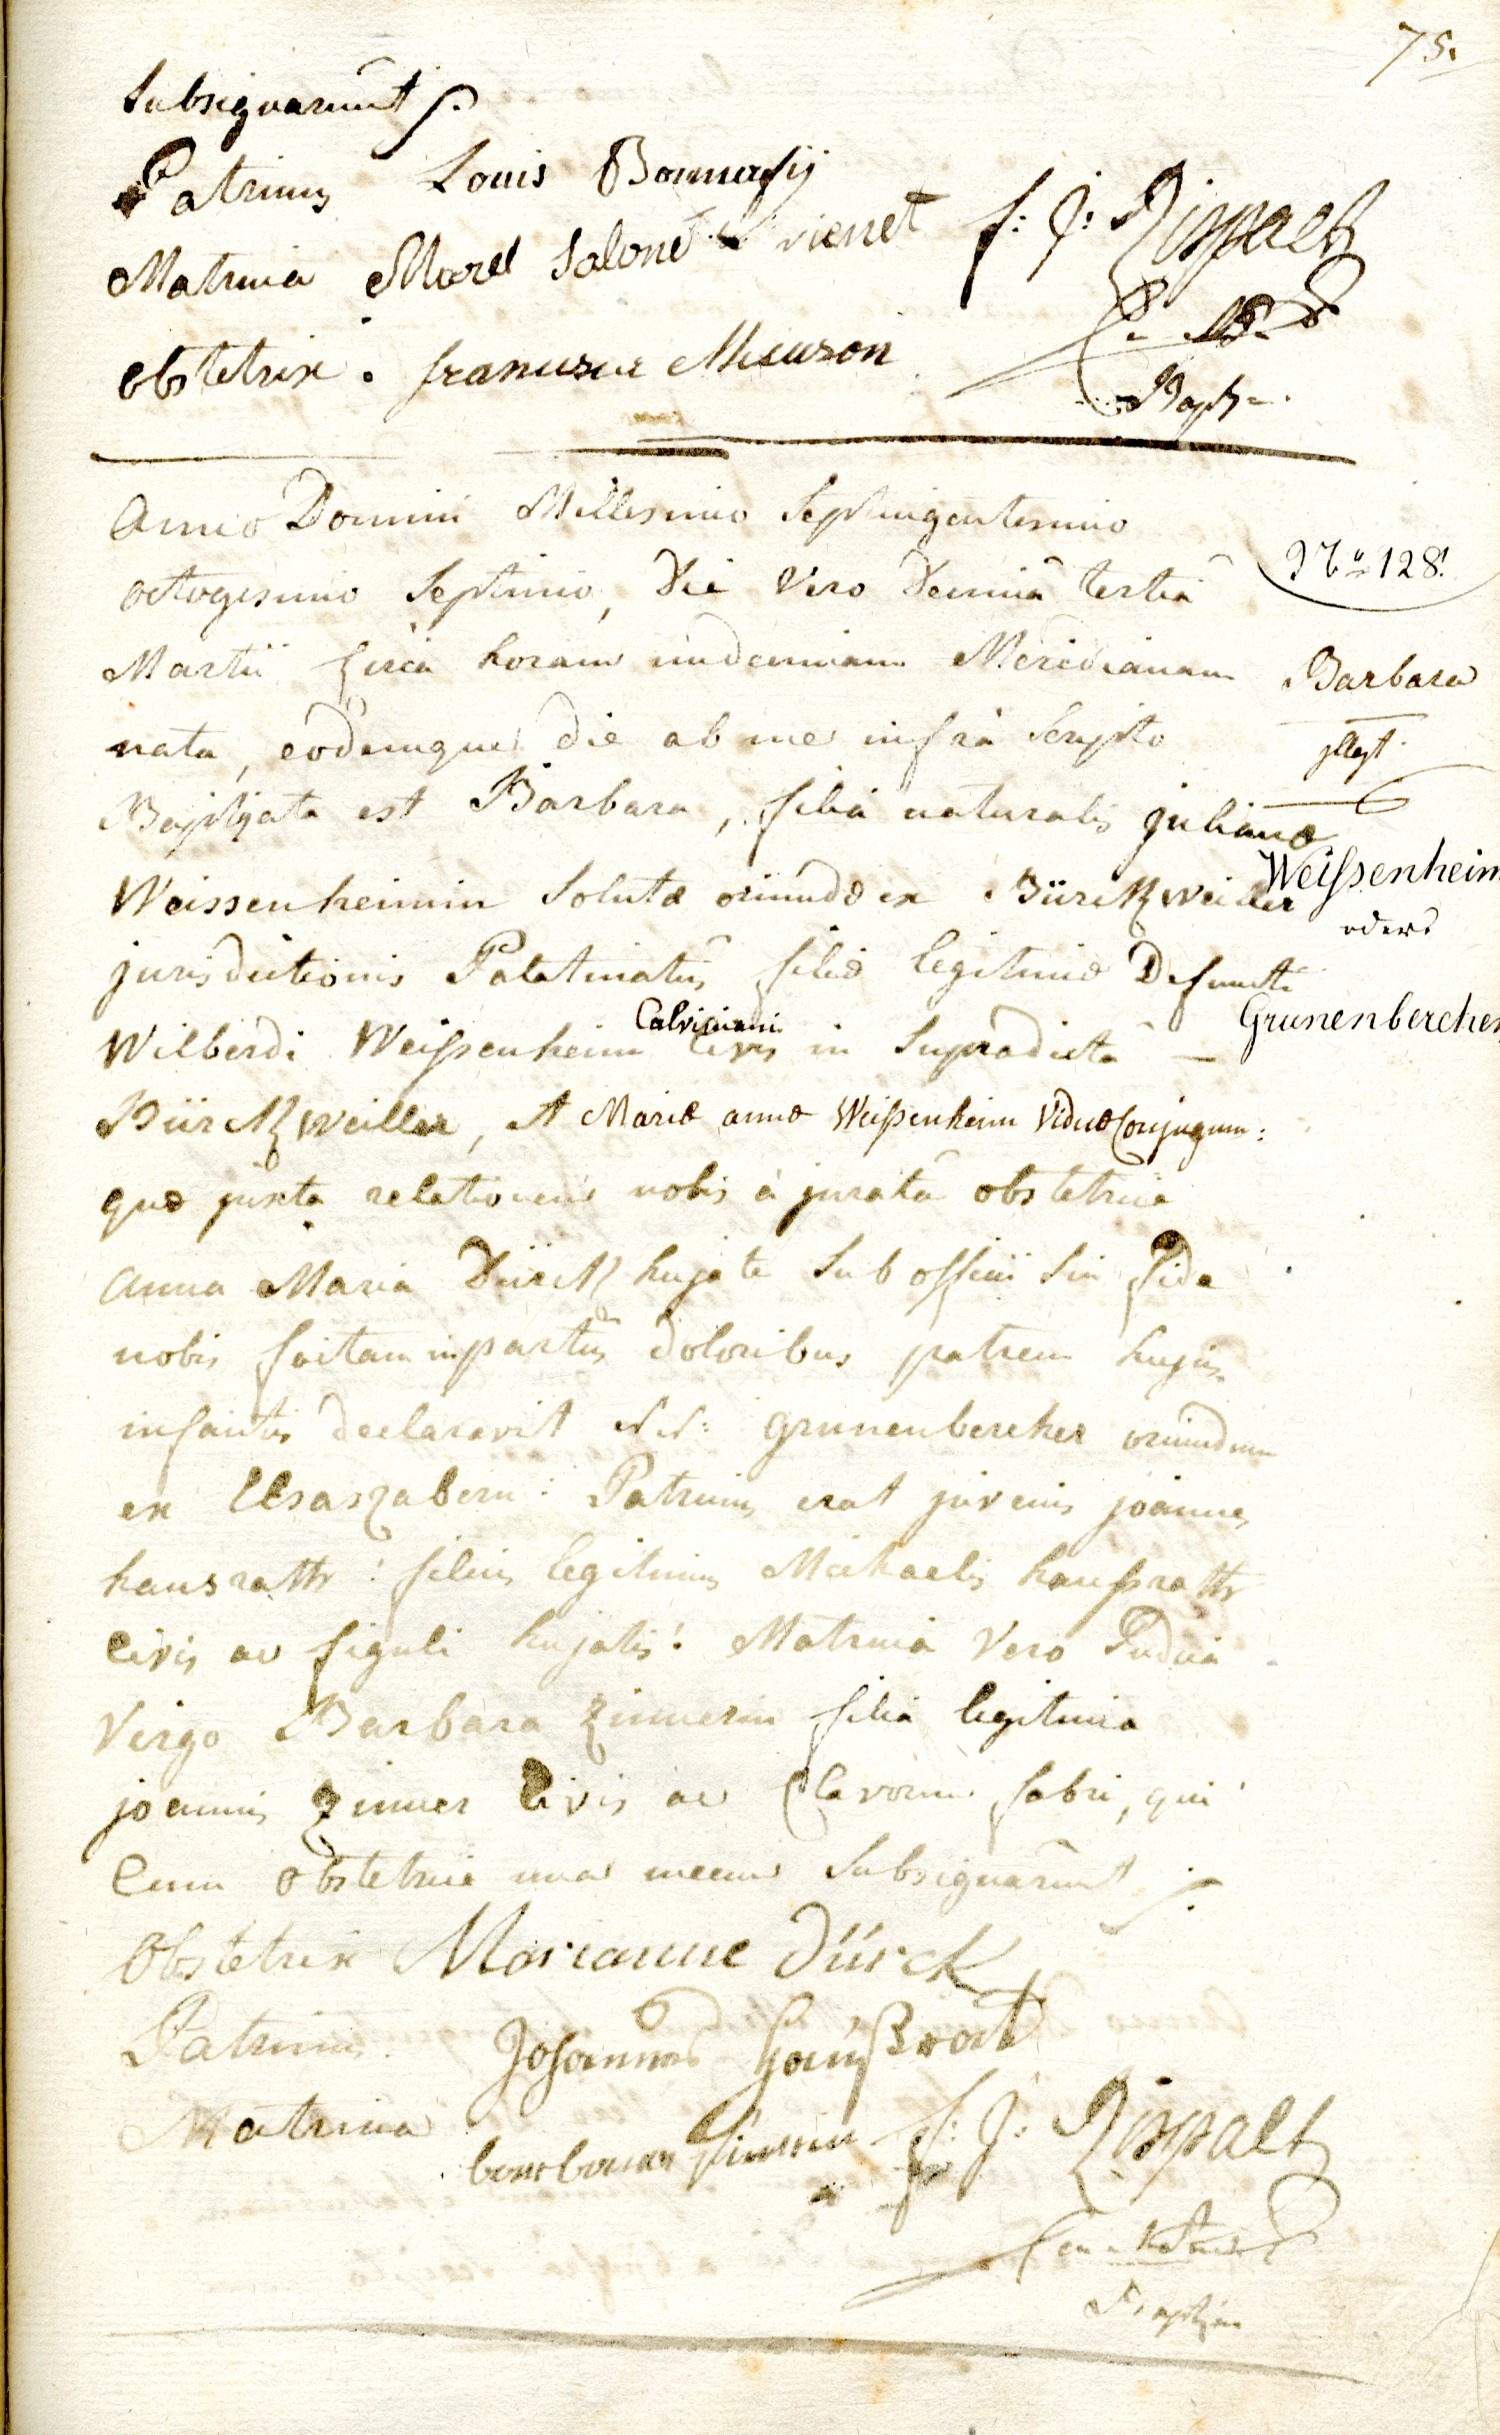 75.
Subsignarunt ./.
Patrinus Louis Bonnassij
Matrina Marel Salomé vienet F: J: Rispalt
obstetrix . francisca Meuron
Bapt.
Anno Domini Millesimo Septingentesimo
octogesimo Septimo, Die Vero Decimâ tertiâ
N.º 128.
Martii Circa horam undecimam Meridianam
Barbara
nata, eodemque die ab me infrà Scripto
illegt.
Baptizata est Barbara, filia naturalis julianæ
Weissenheimin Solutæ oriundæ ex Bürckweiller
Weissenheim
oder
jurisdictionis Palatinatûs filiæ legitimæ Defuncti
Wilberdi Weissenheim Calviniani Civis in Supradictâ
Grunenbercher
Bürckweiller, et Mariæ annæ Weissenheim Viduæ Conjugum:
quæ juxta relationem nobis à juratâ obstetrice
Anna Maria Dürck hujate Sub officii Sui Fide
nobis factam in partûs doloribus patrem hujus
infantis declaravit N.N: grunenbercher oriundum
ex Elsaszabern: Patrinus erat juvenis joannes
hausrath: filius legitimus Michaelis haussrath
Civis ac figuli hujatis: Matrina Vero Pudica
Virgo Barbara Zimerin filia legitima
joannis Zimer Civis ac Clavorum fabri, qui
Cum Obstetrice una mecum Subsignarunt ./.
Obstetrix Marianne Dürck
Patrinus Johannes Haußrat
Matrina barbara Simerin F: J: Rispalt